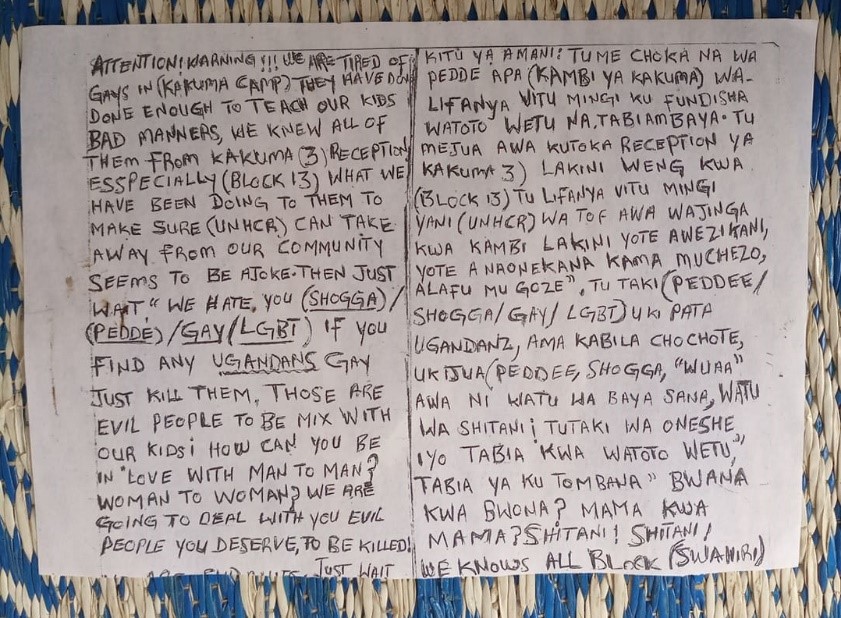 ATTENTION! WARNING!!! WE ARE TIRED OF
GAYS IN (KAKUMA CAMP) THEY HAVE
DONE ENOUGH TO TEACH OUR KIDS
BAD MANNERS, WE KNEW ALL OF
THEM FROM KAKUMA (3) RECEPTION
ESSPECIALLY (BLOCK 13) WHAT WE
HAVE BEEN DOING TO THEM TO
MAKE SURE (UNHCR) CAN TAKE
AWAY FROM OUR COMMUNITY
SEEMS TO BE AJOKE. THEN JUST
WAIT." WE HATE, YOU (SHOGGA)/
(PEDDE)/GAY/LGBT) IF YOU
FIND ANY UGANDANS GAY
JUST KILL THEM, THOSE ARE
EVIL PEOPLE TO BE MIX WITH
OUR KIDS! HOW CAN YOU BE
IN "LOVE WITH MAN TO MAN?
WOMAN TO WOMAN? WE ARE
GOING TO DEAL WITH YOU EVIL
PEOPLE YOU DESERVE, TO BE KILLED!
JUST WAIT
KITU YA AMANI! TUME CHOKA NA WA
PEDDE APA (KAMBI YA KAKUMA) WA-
LIFANYA VITU MINGI KU FUNDISHA
WATOTO WETU NA, TABIAMBAYA. TU
MEJUA AWA KUTOKA RECEPTION YA
KAKUMA 3) LAKINI WENG KWA
(BLOCK 13) TU LIFANYA VITU MINGI
YANI (UNHCR) WA TOF AWA WAJINGA
KWA KAMBI LAKINI YOTE AWEZIKANI,
YOTE ANAONEKANA KAMA MUCHEZO,
ALAFU MU GOZE", TU TAKI (PEDDEE/
SHOGGA/GAY/LGBT) UKI PATA
UGANDANZ, AMA KABILA CHOCHOTE,
UKIJUA (PEDDEE, SHOGGA, "WUAA"
AWA NI WATU WA BAYA SANA, WATU
WA SHITANI! TUTAKI WA ONESHE
IYO TABIA "KWA WATOTO WETU,"
TABIA YA KU TOMBANA" BWANA
KWA BWONA? MAMA KWA
MAMA? SHITANI! SHITANI!
WE KNOWS ALL BLOCK (SWAHIRI)